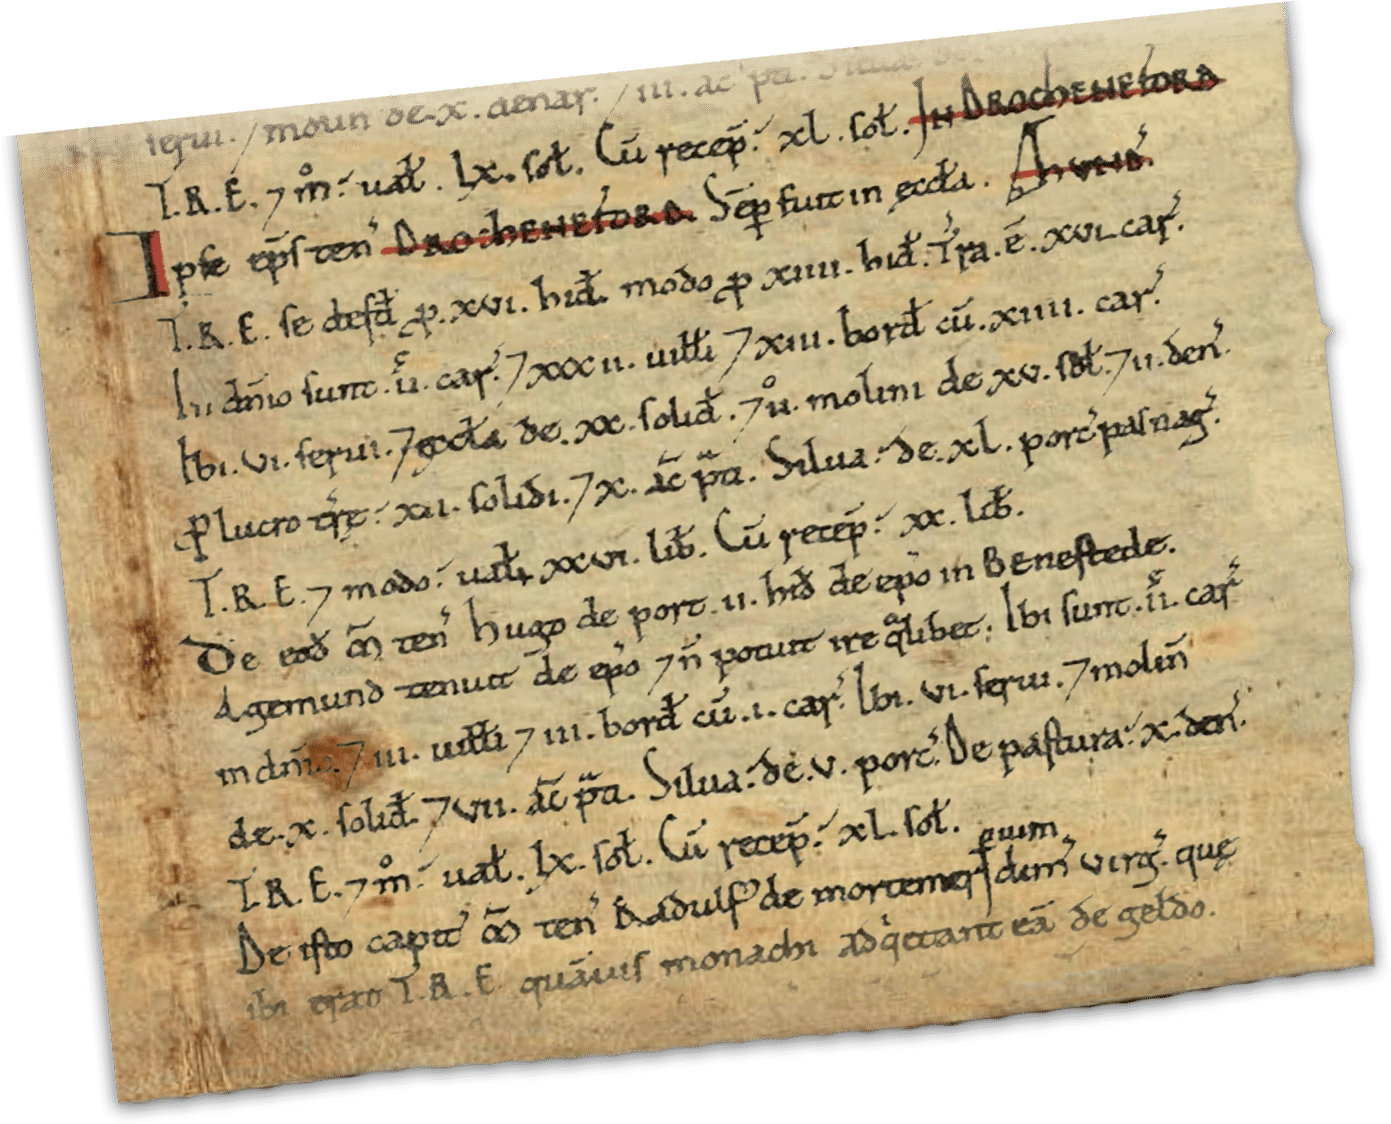 serui. ⁊ molin de .x. denar. ⁊ .iii. ac̄ p̄ti. Silua de
T.R.E. ⁊ m̊. ual̄. lx. sol̄. Cū recep̄. xl. sol̄. IN DROCHENEFORD
Ipse ep̄s ten' DROCHENEFORD. Sēp fuit in ęccl̄a. HVND.
T.R.E. se defd̄ p̱ .xvi. hid̄. modo p̱ xiiii. hid̄. T'ra. ē .xvi. car'.
In dn̄io sunt .v̊. car'. ⁊ xxxii. uill̄i ⁊ xiii. bord̄ cū .xiiii. car'.
Ibi .vi. serui. ⁊ ęccl̄a de .xx. solid̄. ⁊ .iii. molini de xv. sol̄. ⁊ ii. den'.
p̱ lucro t'rę xii. solidi. ⁊ x. ac̄ p̄ti. Silua de .xl. porc' pasnag'.
T.R.E. ⁊ modo ual̄. xxvi. lib̄. Cū recep̄. xx. lib̄.
De eod̄ m̄ ten' hugo de port .ii. hid̄ de ep̄o in BENESTEDE.
Agemund tenuit de ep̄o ⁊ n̄ potuit ire q̊libet. Ibi sunt .ii. car'
in dn̄io. ⁊ iii. uill̄i ⁊ iii. bord̄ cū .i. car'. Ibi .vi. serui. ⁊ molin̄
de .x. solid̄. ⁊ vii. ac̄ p̄ti. Silua de .v. porc'. De pastura x. den'.
T.R.E. ⁊ m̊. ual̄. lx. sol̄. Cū recep̄. xl. sol̄.
De isto capit' m̄ ten' Radulf' de mortemer dim' virg'. quę
ibi erat T.R.E. quāuis monachi adq̇etant eā de geldo.